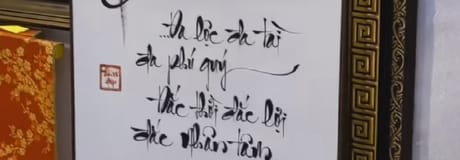 ...Đa lộc đa tài
đa phú quý
Đắc thời đắc lợi
đắc nhân tâm